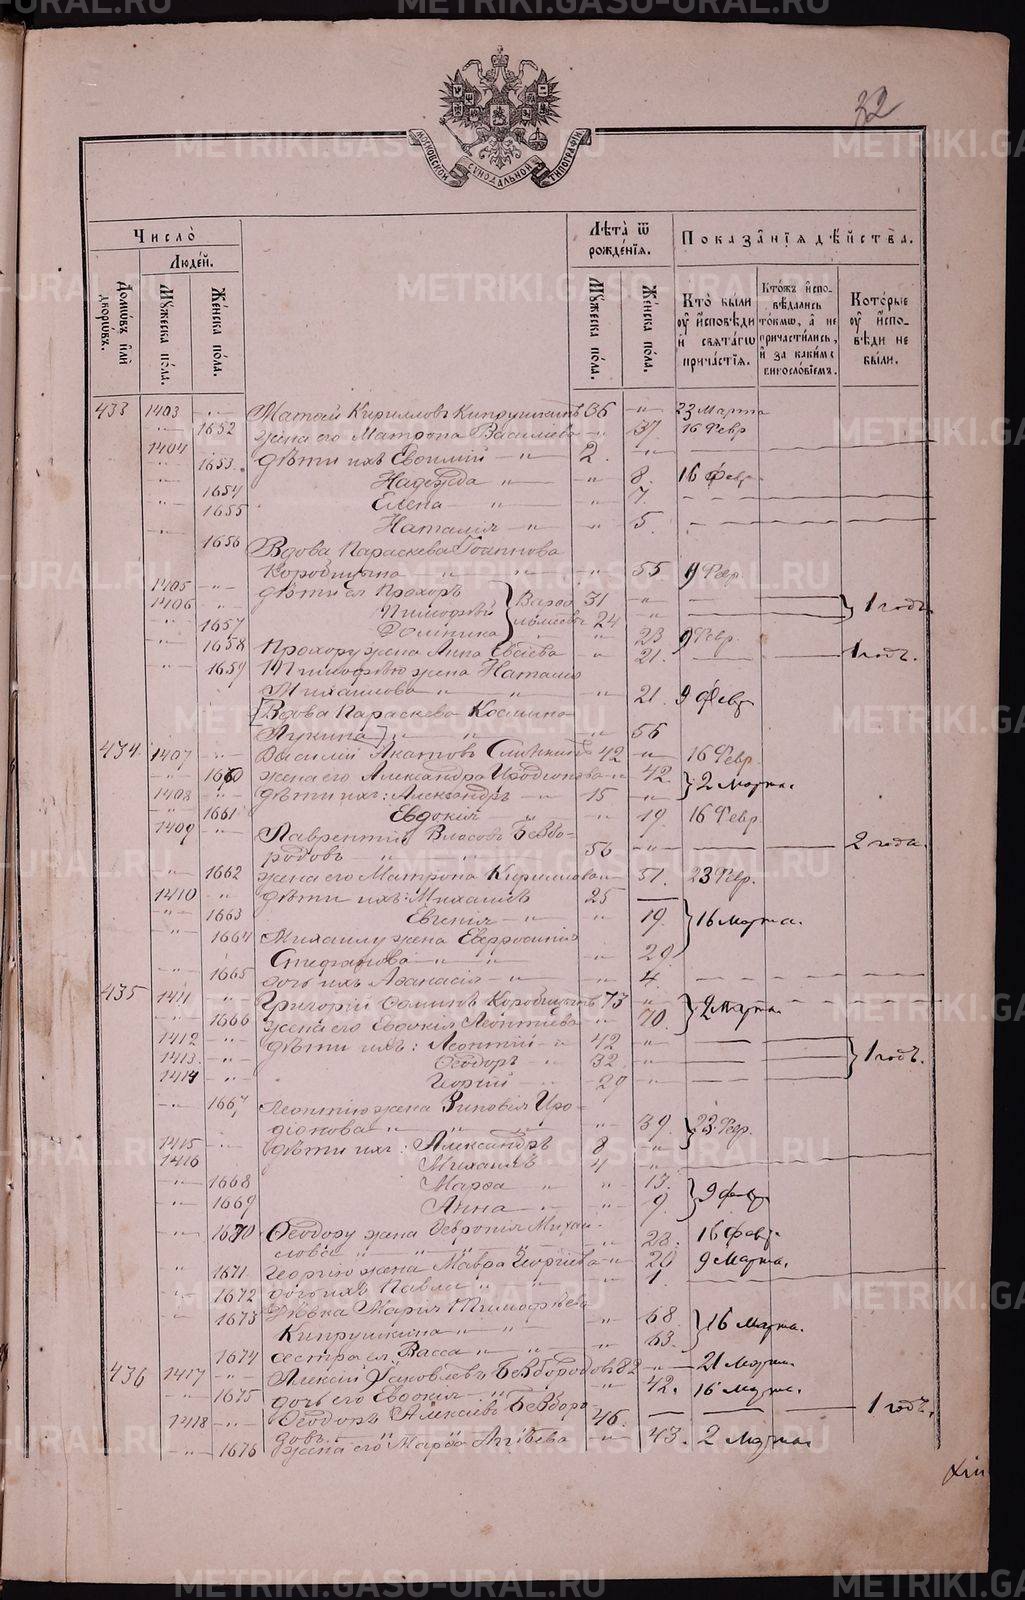 32
МОСКОВСКОЙ СѴНОДАЛЬНОЙ ТИПОГРАФІИ
Число̀
Людéй.
Домѡ́въ и҆лѝ дворѡ́въ.
Мꙋ́жеска по́ла.
Жéнска по́ла.
Лѣ̑та ѿ рождéнїѧ.
Мꙋ́жеска по́ла.
Жéнска по́ла.
Показа̑нїѧ дѣ́йства.
Кто̀ были ᲂу҆ и҆сповѣди и҆ свѧта́гѡ прича́стїѧ.
Кто́жъ и҆сповѣдались то́кмѡ, а҆ не причасти́лись, и҆ за каки́мъ винослóвіемъ.
Кото́рые ᲂу҆ и҆сповѣди не бы́ли.
433 1403 -"- Матѳій Кирилловъ Кипрушкинъ 36 " 23 Марта
-"- 1652 жена его Матрона Василіева -"- 37 16 Февр
1404 дѣти ихъ Евѳимій -"- 2.
-"- 1653. Надежда " -"- 8. 16 Февр.
" 1654 Елена " " 7
1655 Наталія -"- " 5
-"- 1656 Вдова Параскева Іоаннова
Коробицына " " " 55 9 Февр.
1405 -"- дѣти ея Прохоръ } Варѳо 31 -"-
1406 " Тимоѳей ломеевы 24 -"- } 1 годъ
" 1657 Домника " 23 9 Февр.
-"- 1658 Прохору жена Анна Евсѣева " 21. 1 годъ.
-"- 1659 Тимоѳею жена Наталія
Михаилова " " -"- 21. 9 Февр
[Вдова Параскева Космина
Лукина] " " " 56
434 1407 -"- Василій Акатовъ Слинкинъ 42 -"- 16 Февр.
-"- 1660 жена его Александра Иродіонова -"- 42 } 2 Марта.
1408 -"- дѣти ихъ: Александръ -"- 15 "
-"- 1661 Евдокія -"- " 19. 16 Февр.
1409 -"- Лаврентій Власовъ Безбо-
родовъ -"- " 56 -"- 2 года.
-"- 1662 жена его Матрона Кириллова -"- 51. 23 Февр.
1410 " дѣти ихъ: Михаилъ 25
-"- 1663 Евгенія -"- " 19. } 16 Марта.
-"- 1664 Михаилу жена Евфросинія
Стефанова -"- " 20.
-"- 1665 дочь ихъ Аѳанасія -"- " 4.
435 1411 " Григорій Ѳоминъ Коробицынъ 73 " } 2 Марта.
-"- 1666 жена его Евдокія Леонтіева " 70.
1412 -"- дѣти ихъ: Леонтій -"- 42 "
1413. -"- Ѳеодоръ " 32 " } 1 годъ.
1414 -"- Георгій -"- 29 "
-"- 1667 Леонтію жена Зиновія Иро-
діонова " " " " 39. } 23 Февр.
1415 -"- дѣти ихъ: Александръ 8 "
1416 -"- Михаилъ 4 -"-
-"- 1668 Марѳа " " 13. } 9 Февр
-"- 1669 Анна -"- " 9.
-"- 1670 Ѳеодору жена Февронія Михаи-
лова " " " 28. 16 Февр.
" 1671 Георгію жена Мавра Георгіева -"- 20 9 Марта.
-"- 1672 дочь ихъ Павла " " " 1
-"- 1673 Дѣвка Марія Тимоѳеева
Кипрушкина " " " 68. } 16 Марта.
-"- 1674 сестра ея Васса " " " 63.
436 1417 -"- Алексій Яковлевъ Безбородовъ 82 " 21 Марта.
-"- 1675 дочь его Евдокія " " 42. 16 Марта.
1418 -"- Ѳеодоръ Алексіевъ Безборо-
довъ. -"- " 46. 1 годъ.
-"- 1676 жена его Марѳа -"- 43. 2 Марта
METRIKI.GASO-URAL.RU